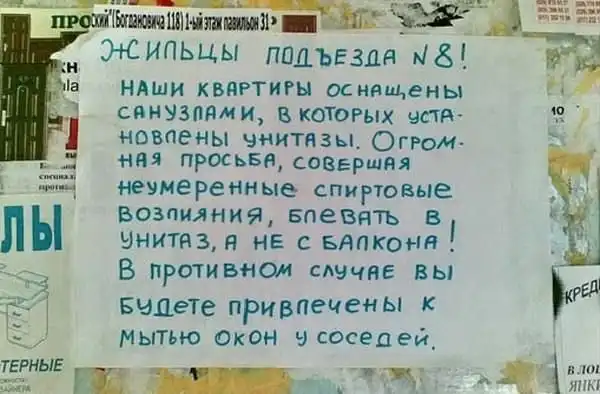 (Богдановича 118) 1-ый этаж павильон 31»
ЖИЛЬЦЫ ПОДЪЕЗДА №8!
НАШИ КВАРТИРЫ ОСНАЩЕНЫ
САНУЗЛАМИ, В КОТОРЫХ УСТА-
НОВЛЕНЫ УНИТАЗЫ. ОГРОМ-
НАЯ ПРОСЬБА, СОВЕРШАЯ
НЕУМЕРЕННЫЕ СПИРТОВЫЕ
ВОЗЛИЯНИЯ, БЛЕВАТЬ В
УНИТАЗ, А НЕ С БАЛКОНА!
В ПРОТИВНОМ СЛУЧАЕ ВЫ
БУДЕТЕ ПРИВЛЕЧЕНЫ К
МЫТЬЮ ОКОН У СОСЕДЕЙ.